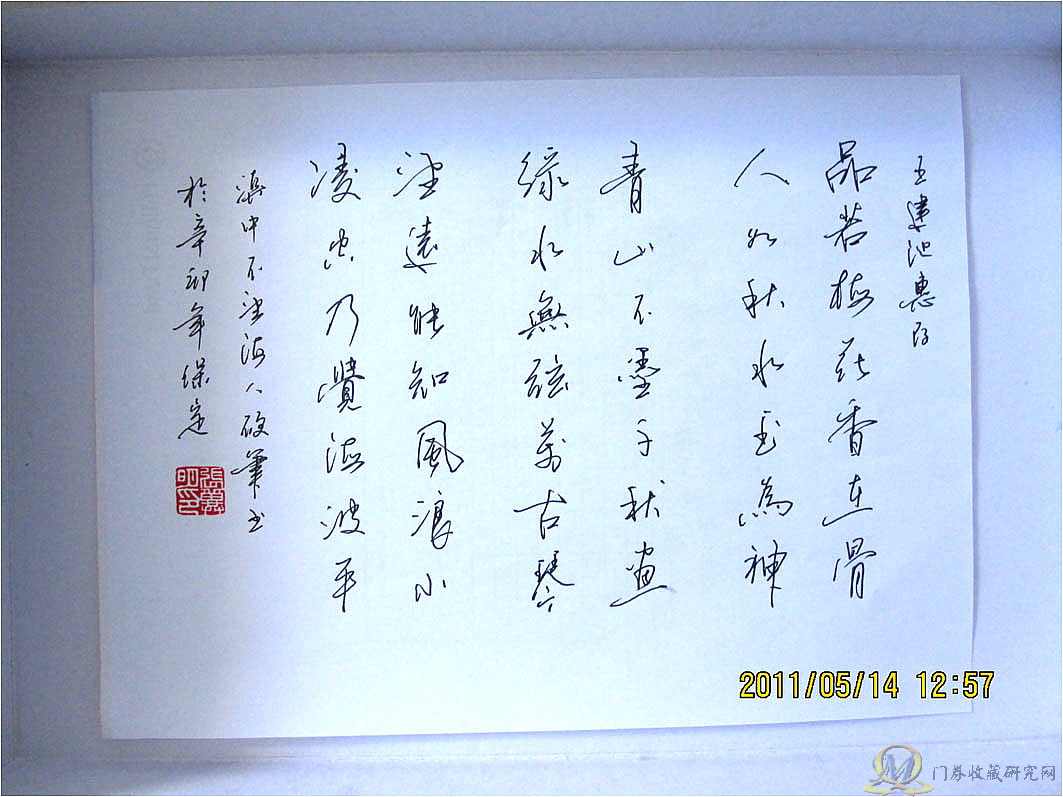 王建池惠存
品若梅花香在骨
人如秋水玉為神
青山不墨千秋畫
綠水無弦萬古琴
望遠能知風浪小
凌空乃覺海波平
中不望海人破筆书
於辛卯年保定
2011/05/14 12:57
门券收藏研究网